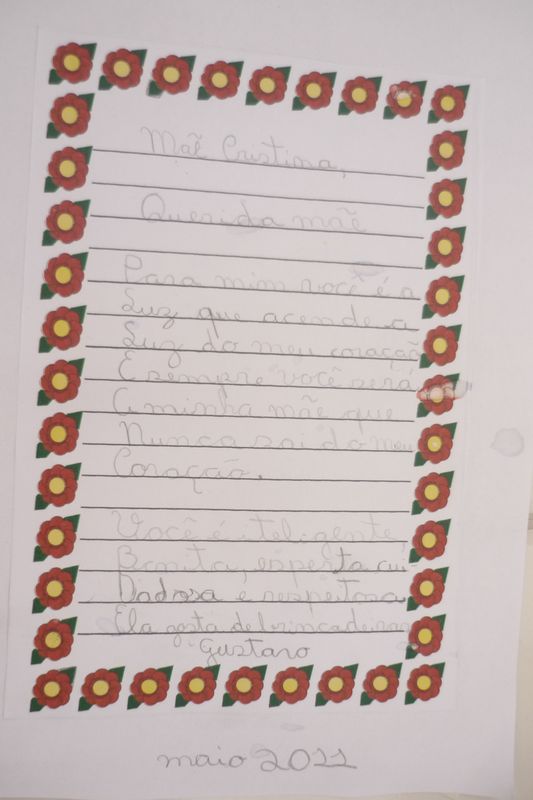 Mãe Cristina,
Querida mãe
Para mim você é a
Luz que acende a
Luz do meu coração
E sempre você será
A minha mãe que
Nunca sai do meu
Coração.
Você é iteligente
Bonita, esperta cui-
Dadosa e respeitosa
Ela gosta de brincadeiras
Gustavo
maio 2011